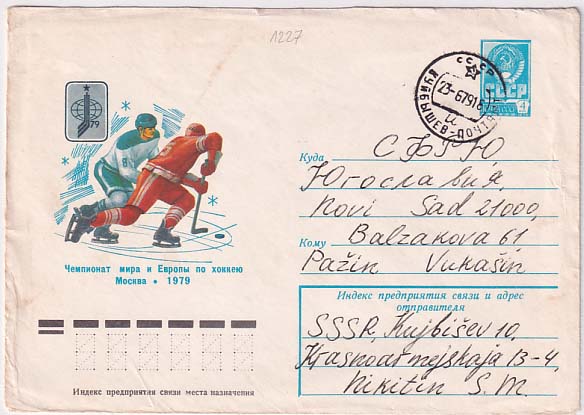 1227
СССР
КУЙБЫШЕВ-ПОЧТАМТ
23-6791
и
СССР
ПОЧТА
4
79
8
Чемпионат мира и Европы по хоккею
Москва • 1979
Куда СФРЮ
Югославия,
Novi Sad 21000,
Кому Balzakova 61
Pažin Vukašin
Индекс предприятия связи и адрес
отправителя
SSSR, Kujbišev 10,
Krasnoarmejskaja 13-4,
Nikitin S. M.
Индекс предприятия связи места назначения